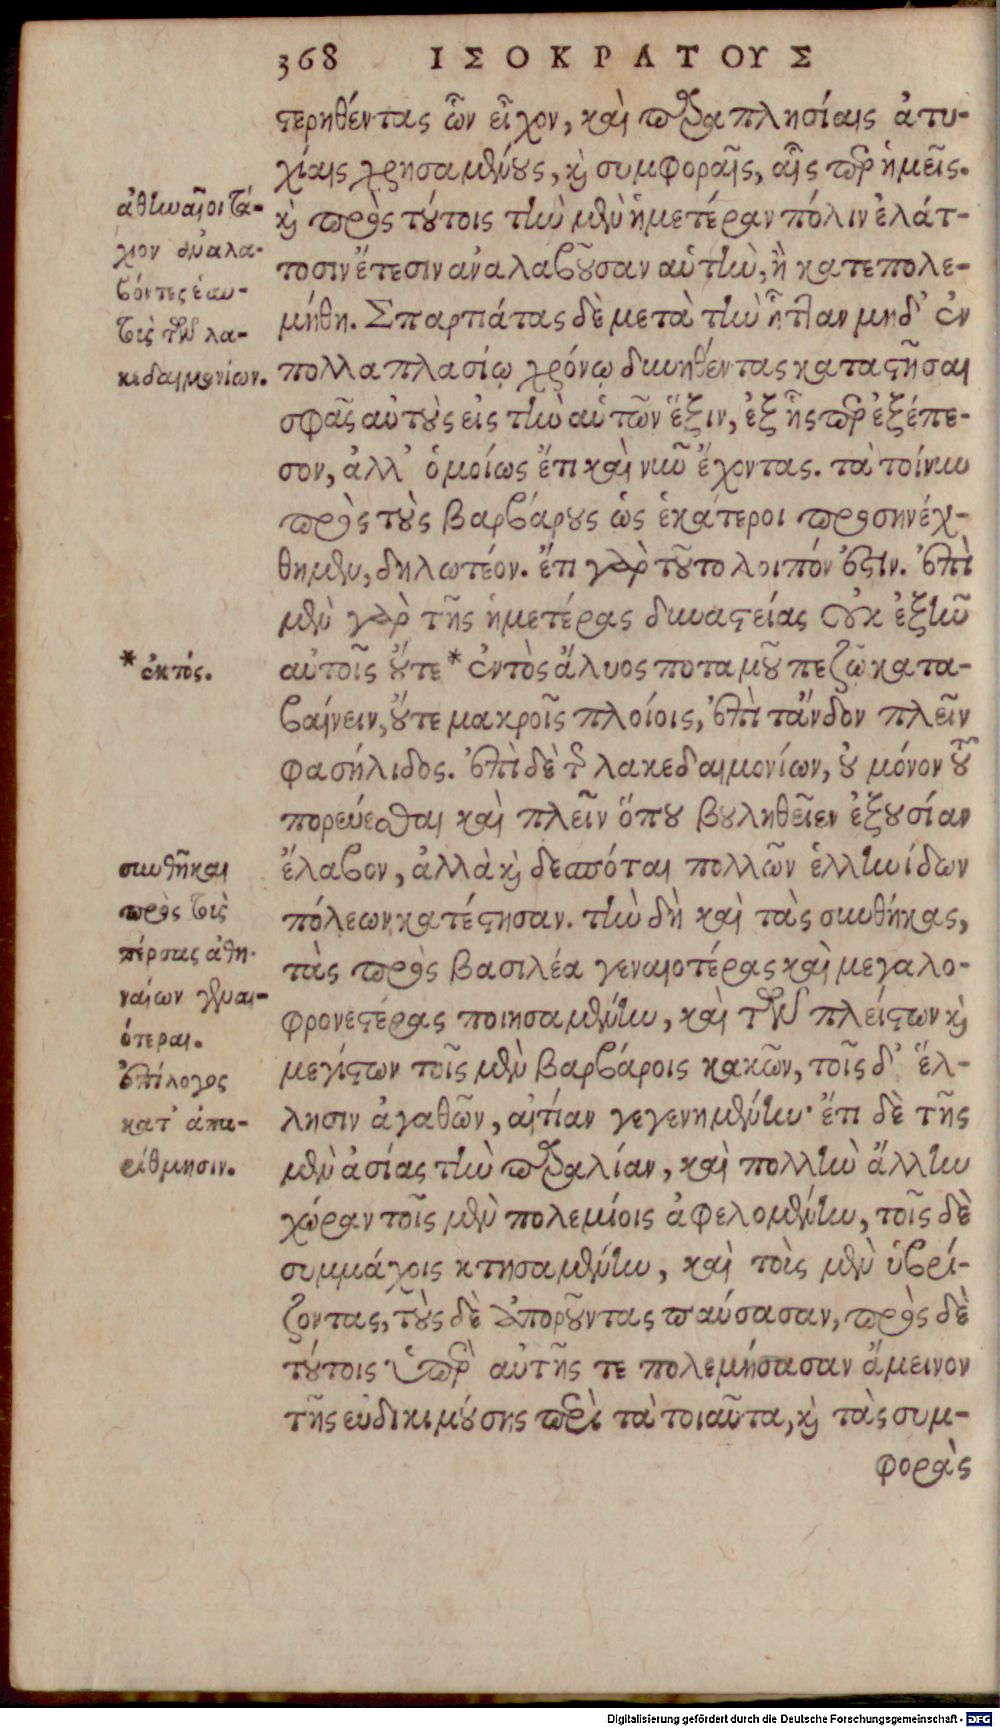 368 ΙΣΟΚΡΑΤΟΥΣ
στερηθέντας ὧν εἶχον, καὶ παραπλησίαις ἀτυ-
χίαις χρησαμένους, καὶ συμφοραῖς, αἷς περ ἡμεῖς.
καὶ πρὸς τούτοις τὴν μὲν ἡμετέραν πόλιν ἐλάτ-
τοσιν ἔτεσιν ἀναλαβοῦσαν αὑτὴν, ἢ κατεπολε-
μήθη. Σπαρτιάτας δὲ μετὰ τὴν ἧτταν μηδ' ἐν
πολλαπλασίῳ χρόνῳ δυνηθέντας καταστῆσαι
σφᾶς αὐτοὺς εἰς τὴν αὑτῶν ἕξιν, ἐξ ἧς περ ἐξέπε-
σον, ἀλλ' ὁμοίως ἔτι καὶ νῦν ἔχοντας. τὰ τοίνυν
πρὸς τοὺς βαρβάρους ὡς ἑκάτεροι προσηνέχ-
θημεν, δηλωτέον. ἔτι γὰρ τοῦτο λοιπόν ἐστιν. ἐπὶ
μὲν γὰρ τῆς ἡμετέρας δυναστείας οὐκ ἐξῆν
αὐτοῖς οὔτε * ἐντὸς ἅλυος ποταμοῦ πεζῷ κατα-
βαίνειν, οὔτε μακροῖς πλοίοις, ἐπὶ τἄνδον πλεῖν
φασήλιδος. ἐπὶ δὲ τῆς λακεδαιμονίων, οὐ μόνον τοῦ
πορεύεσθαι καὶ πλεῖν ὅπου βουληθεῖεν ἐξουσίαν
ἔλαβον, ἀλλὰ καὶ δεσπόται πολλῶν ἑλληνίδων
πόλεων κατέστησαν. τὴν δὴ καὶ τὰς συνθήκας,
τὰς πρὸς βασιλέα γενναιοτέρας καὶ μεγαλο-
φρονεστέρας ποιησαμένην, καὶ τῶν πλείστων καὶ
μεγίστων τοῖς μὲν βαρβάροις κακῶν, τοῖς δ' ἕλ-
λησιν ἀγαθῶν, αἰτίαν γεγενημένην· ἔτι δὲ τῆς
μὲν ἀσίας τὴν παραλίαν, καὶ πολλὴν ἄλλην
χώραν τοῖς μὲν πολεμίοις ἀφελομένην, τοῖς δὲ
συμμάχοις κτησαμένην, καὶ τοὺς μὲν ὑβρί-
ζοντας, τοὺς δὲ ἀποροῦντας παύσασαν, πρὸς δὲ
τούτοις ὑπὲρ αὑτῆς τε πολεμήσασαν ἄμεινον
τῆς εὐδοκιμούσης περὶ τὰ τοιαῦτα, καὶ τὰς συμ-
φορὰς
ἀθηναῖοι τά-
χιον ἀναλα-
βόντες ἑαυ-
τοὺς τῶν λα-
κεδαιμονίων.
* ἐκτός.
συνθῆκαι
πρὸς τοὺς
πέρσας ἀθη-
ναίων γενναι-
ότεραι.
ἐπίλογος
κατ' ἀπα-
ρίθμησιν.
Digitalisierung gefördert durch die Deutsche Forschungsgemeinschaft - DFG